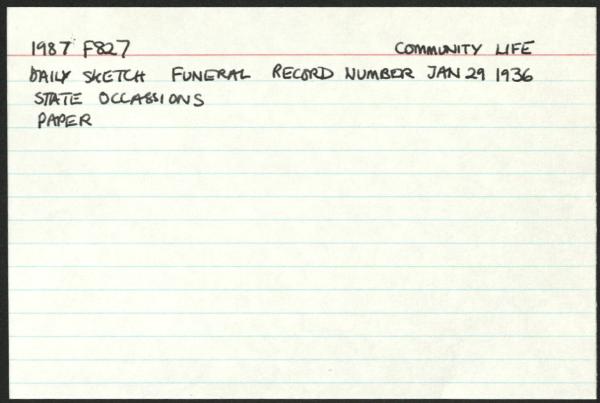 1987 F827 COMMUNITY LIFE
DAILY SKETCH FUNERAL RECORD NUMBER JAN 29 1936
STATE OCCASSIONS
PAPER